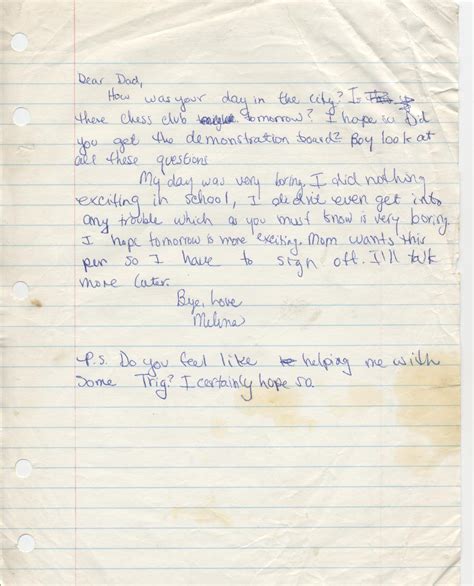 Dear Dad,
How was your day in the city? Is
there chess club tomorrow? I hope so Did
you get the demonstration board? Boy look at
all these questions
My day was very boring. I did nothing
exciting in school, I didn't even get into
any trouble which as you must know is very boring.
I hope tomorrow is more exciting. Mom wants this
pen so I have to sign off. I'll talk
more later.
Bye, Love
Melina
P.S. Do you feel like helping me with
some Trig? I certainly hope so.